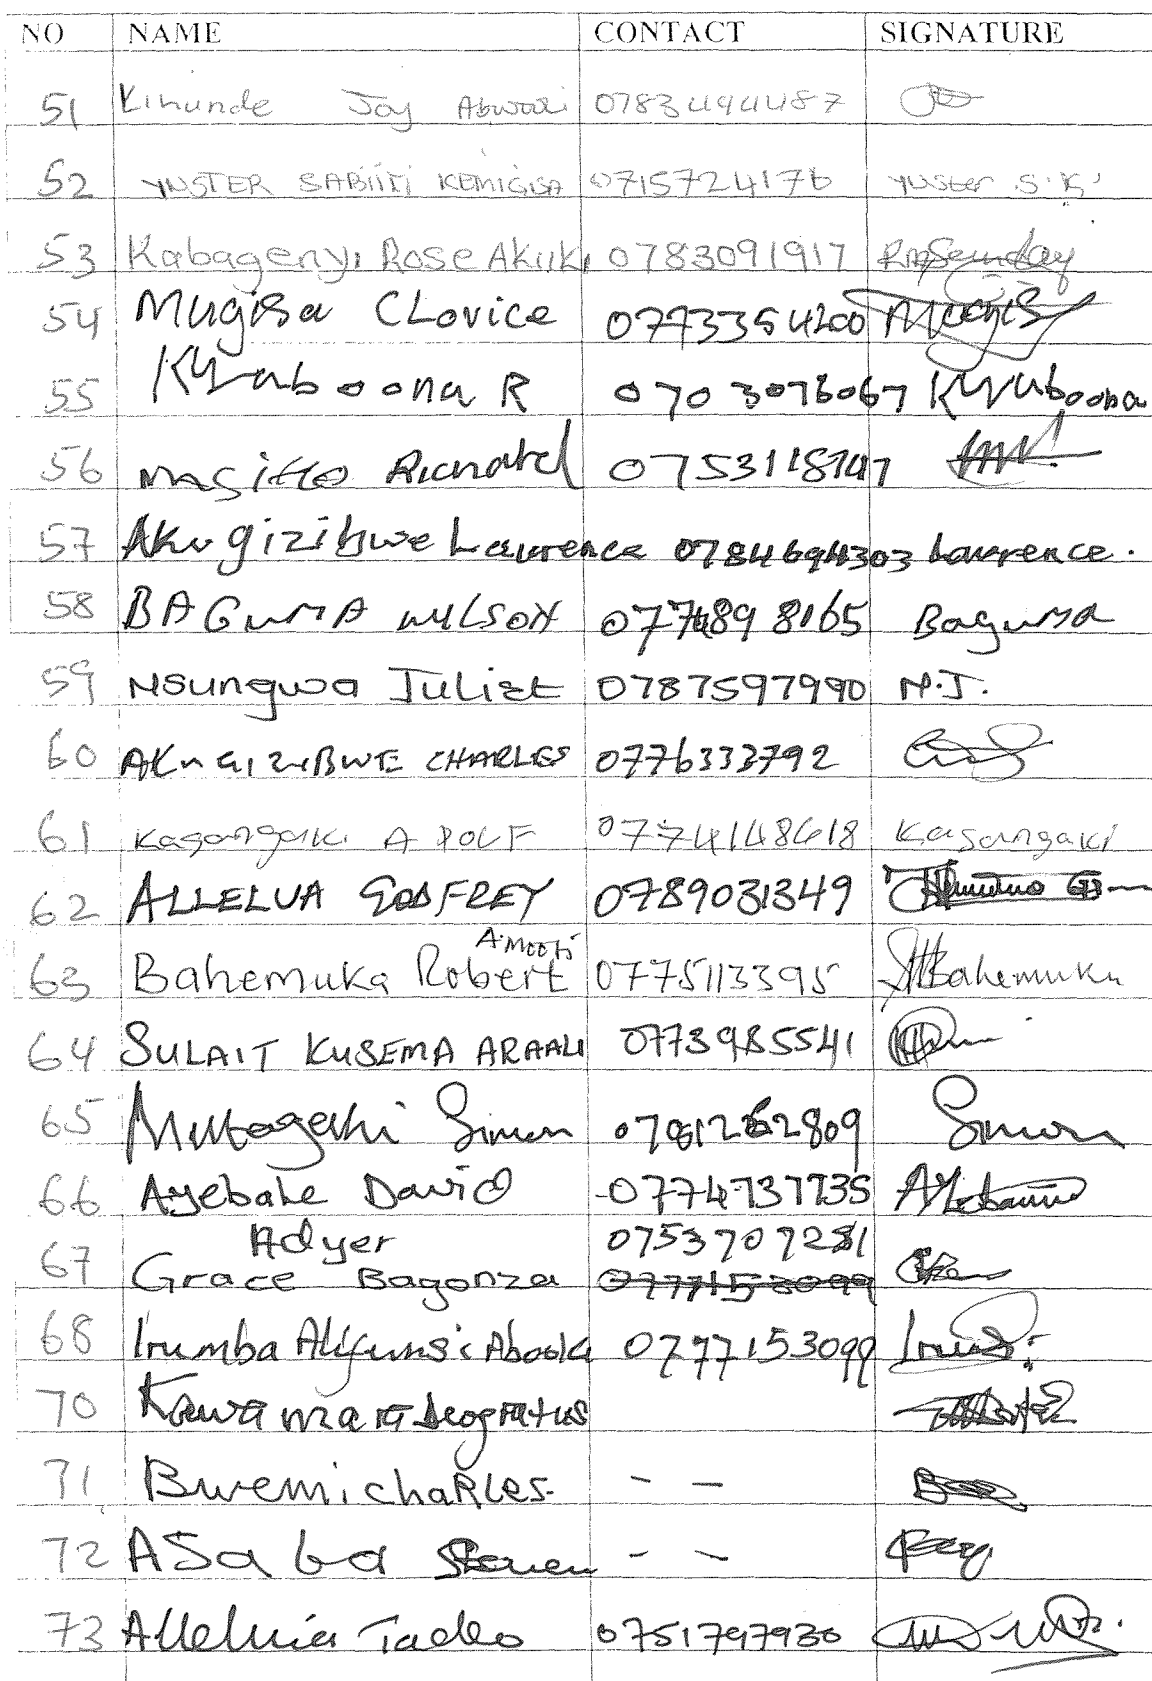 NO NAME CONTACT SIGNATURE
51 Kihunde Joy Abwooli 0783494487
52 YUSTER SABIITI KEMIGISA 0715724176 Yuster S.K
53 Kabagenyi Rose Akiiki 0783091917
54 Mugisa CLovice 0773354200 Mugisa
55 Kyaboona R 0703076067 Kyaboona
56 0753118747
57 Akugizibwe Lawrence 0784694303 Lawrence.
58 BAGUMA WILSON 0774898165 Baguma
59 Nsungwa Juliet 0787597990 N.J.
60 AKUGIZIBWE CHARLES 0776333792
61 Kasangaki A DOLF 0774148618 Kasangaki
62 ALLELUA GODFREY 0789031349
Amooti
63 Bahemuka Robert 0775113395 Bahemuka
64 SULAIT KUSEMA ARAALI 0773985541
65 Simon Simon
66 Ayebale David 0774737735
Adyer 0753707281
67 Grace Bagonza 0777153099
68 Irumba Alifunsi Abooki 0777153099
70 Kawamara Deogratus
71 Bwemi chaRLes. - -
72 ASaba Steven - -
73 Alleluia Tadeo 0751797930